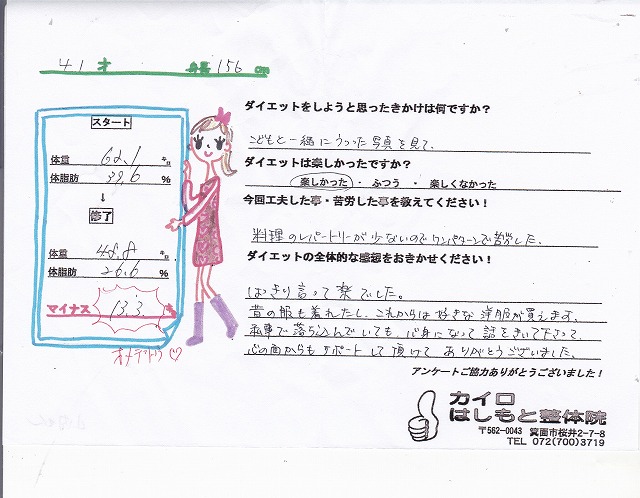 41才 身長 156 cm
ダイエットをしようと思ったきかけは何ですか？
こどもと一緒にうつった写真を見て.
ダイエットは楽しかったですか？
楽しかった ・ ふつう ・ 楽しくなかった
今回工夫した事・苦労した事を教えてください！
料理のレパートリーが少ないのでワンパターンで苦労した.
ダイエットの全体的な感想をおきかせください！
はっきり言って楽でした。
昔の服も着れたし、これからは好きな洋服が買えます.
私事で落ち込んでいても、心身になって話をきいて下さって、
心の面からもサポートして頂けて ありがとうございました.
アンケートご協力ありがとうございました！
スタート
体重 62.1 キロ
体脂肪 39.6 %
↓
修了
体重 48.8 キロ
体脂肪 26.6 %
マイナス 13.3 キロ
オメデトウ♡
カイロ
はしもと整体院
〒562-0043 箕面市桜井2-7-8
TEL 072(700)3719